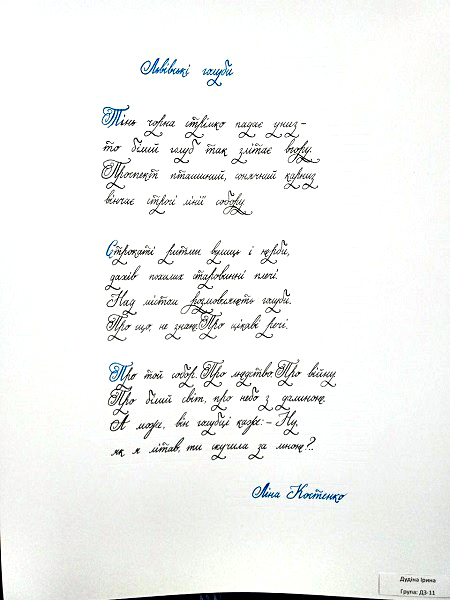 Львівські голуби
Тінь чорна стрімко падає униз –
то білий голуб так злітає вгору.
Проспект пташиний, сонячний карниз
вінчає строгі лінії собору.
Строкаті ритми вулиць і юрби,
дахів похилих старовинні плечі.
Над містом розмовляють голуби.
Про що, не знаю. Про цікаві речі.
Про той собор. Про людство. Про війну.
Про білий світ, про небо з далиною.
А може, він голубці каже: – Ну,
як я літав, ти скучила за мною?..
Ліна Костенко
Дудіна Ірина
Група: ДЗ-11